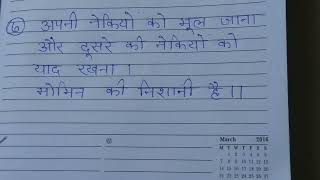 ६ अपनी नेकियो को भूल जाना
और दूसरे की नेकियो को
याद रखना ।
मोमिन की निशानी है ।।
March 2016
M T W T F S S